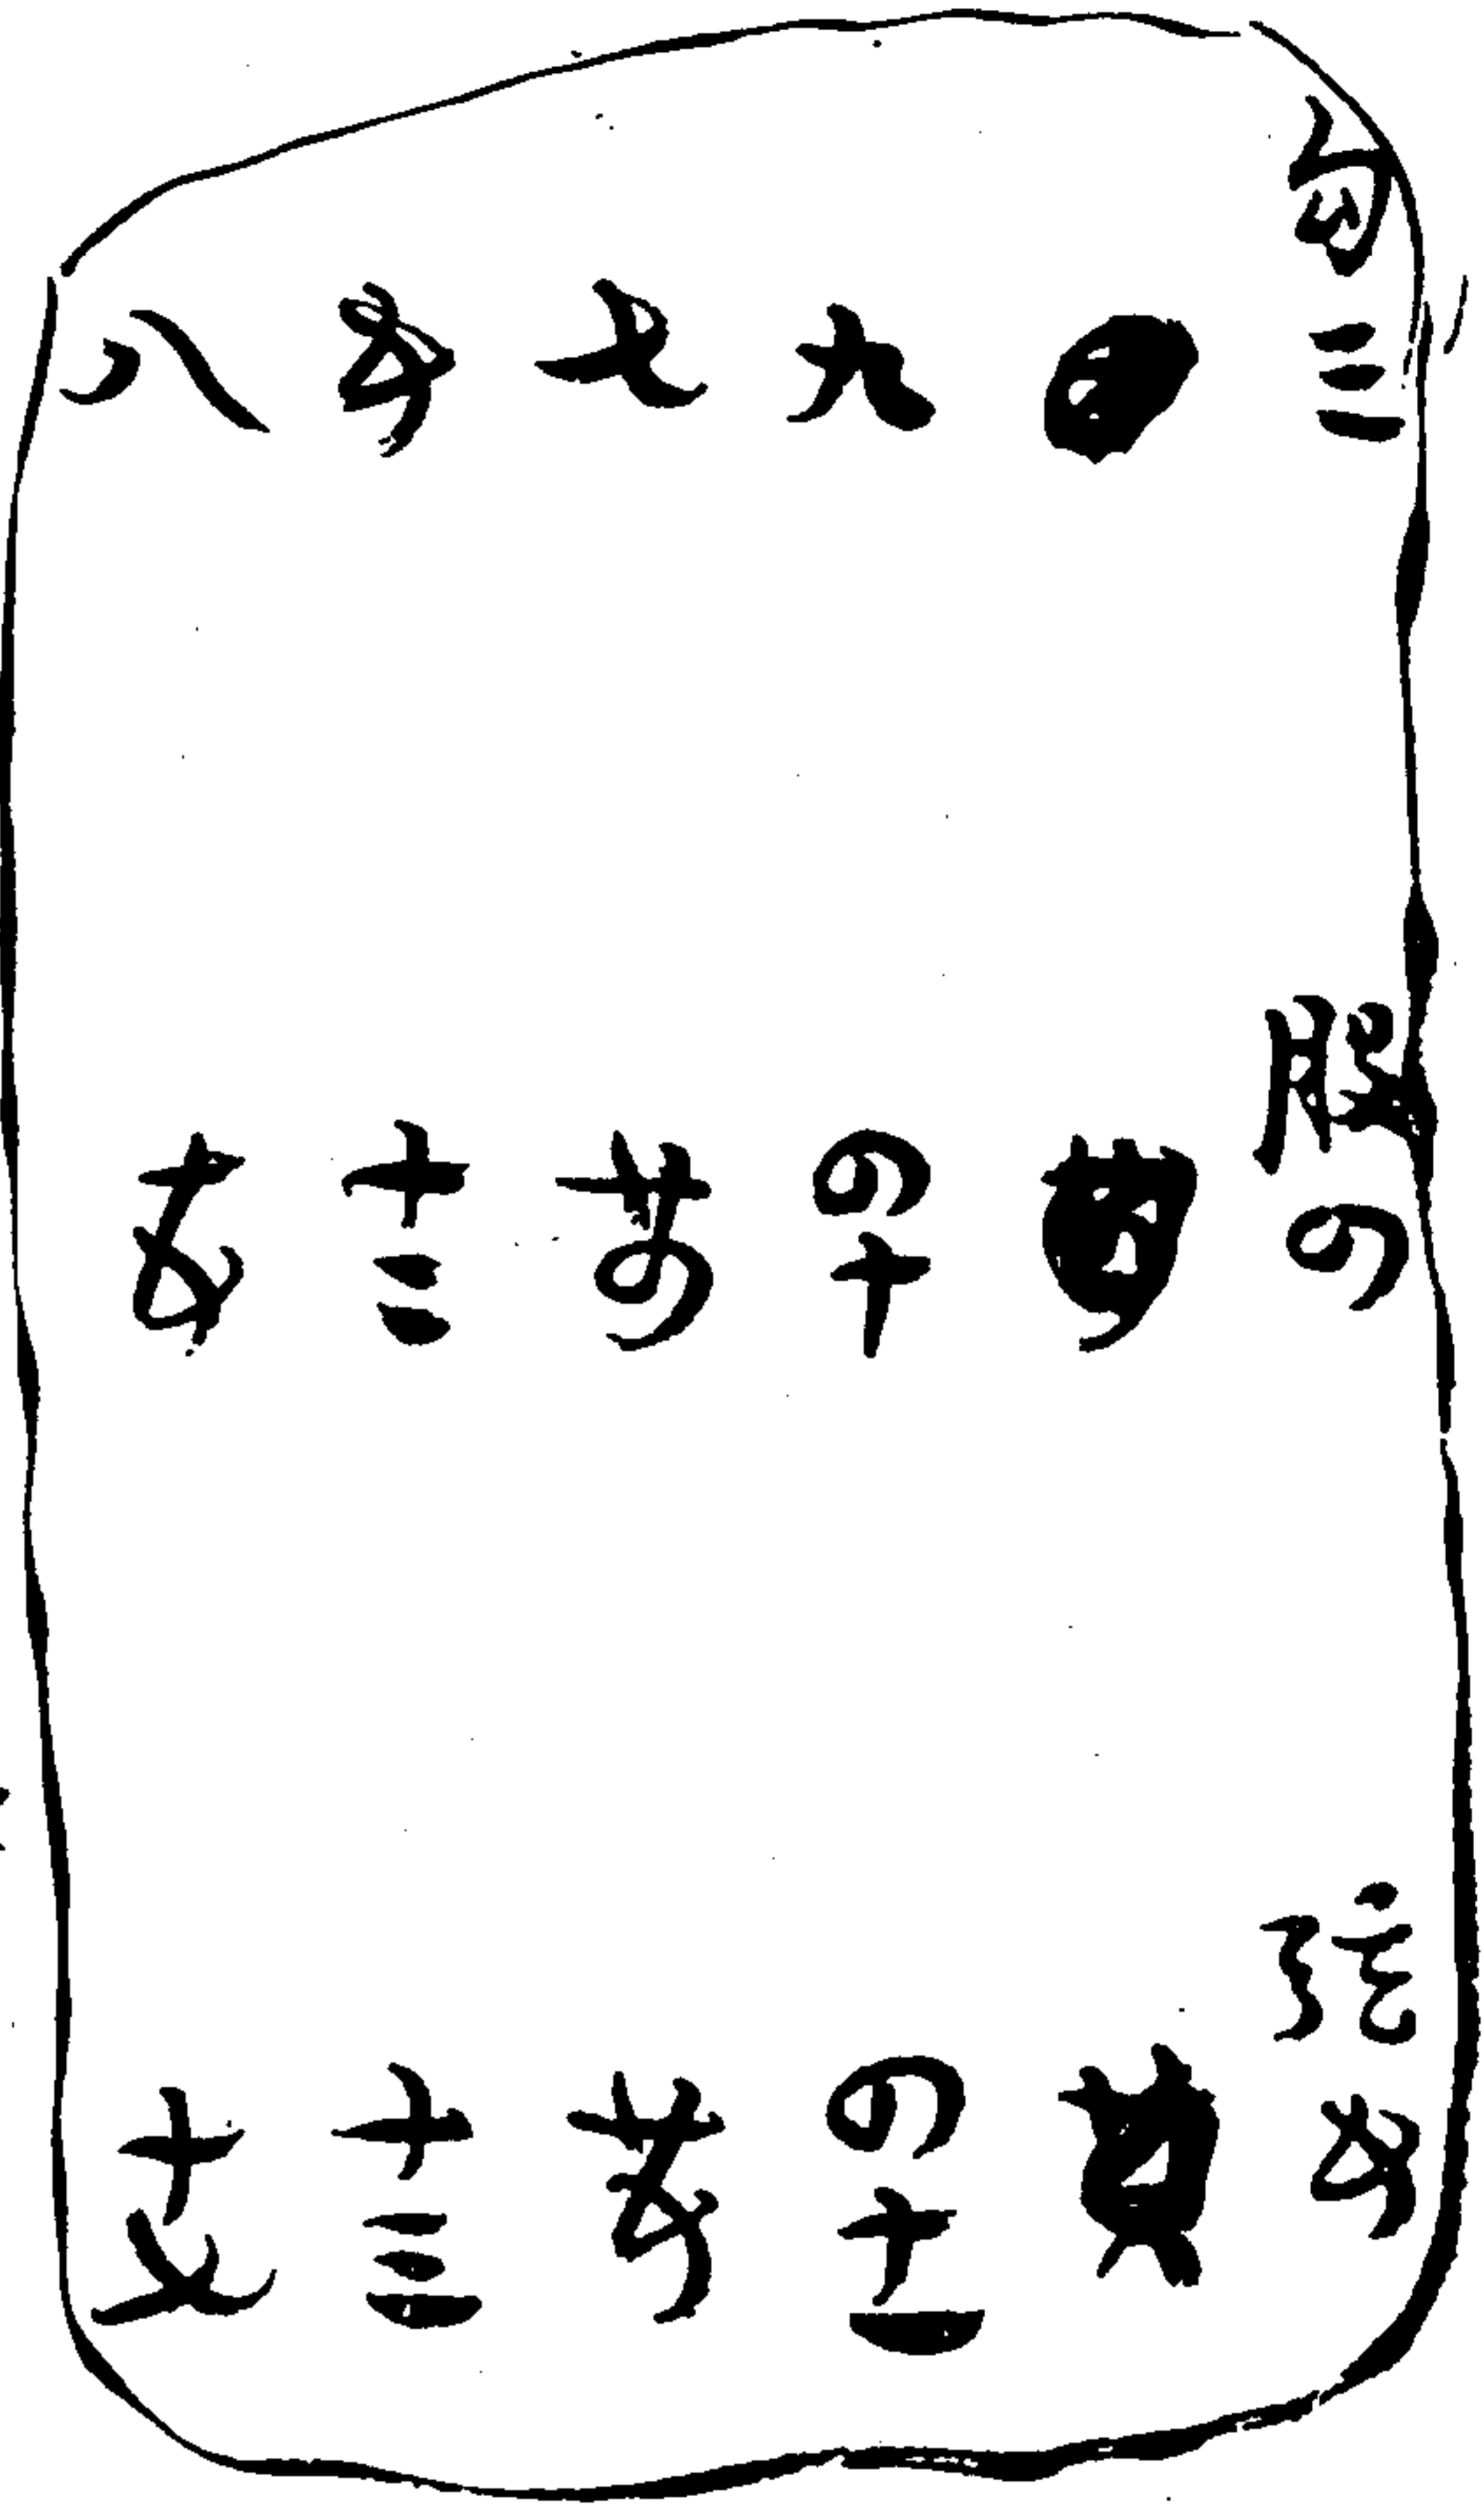 勾三 股四 弦五
九 四十 四十一
七 廿四 廿五
五 十二 十三
八 十五 十七